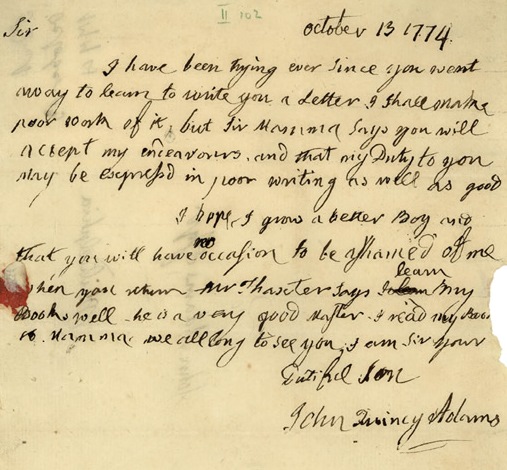 II 102
Sir
October 13 1774.
I have been trying ever since you went
away to learn to write you a Letter. I shall make
poor work of it, but Sir Mamma says you will
accept my endeavours, and that my Duty to you
may be expressd in poor writing as well as good
I hope I grow a better Boy and
that you will have no occasion to be ashamed of me
when you return Mr Thaxter says I learn my
Books well. he is a very good Master. I read my Books
to Mamma. we all long to see you. I am Sir your
Dutiful Son
John Quincy Adams